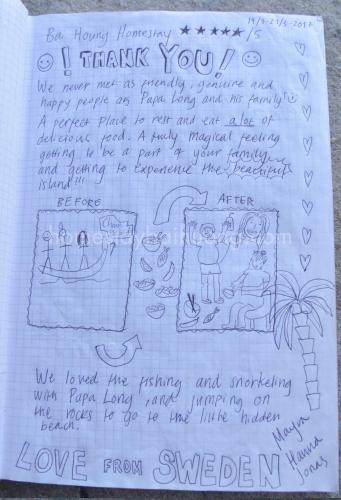 19/3-21/3-2017
Bai Huong Homestay ★★★★★/5
! THANK YOU!
We never met as friendly, genuine and
happy people as Papa Long and his family!
A perfect place to rest and eat a lot of
delicious food. A truly magical feeling
getting to be a part of your family
and getting to experience the beautiful
island!!!
BEFORE AFTER
homestaybaihuong.com
We loved the fishing and snorkeling
with Papa Long, and jumping on
the rocks to go to the little hidden
beach.
Hanna
Jonas
LOVE FROM SWEDEN